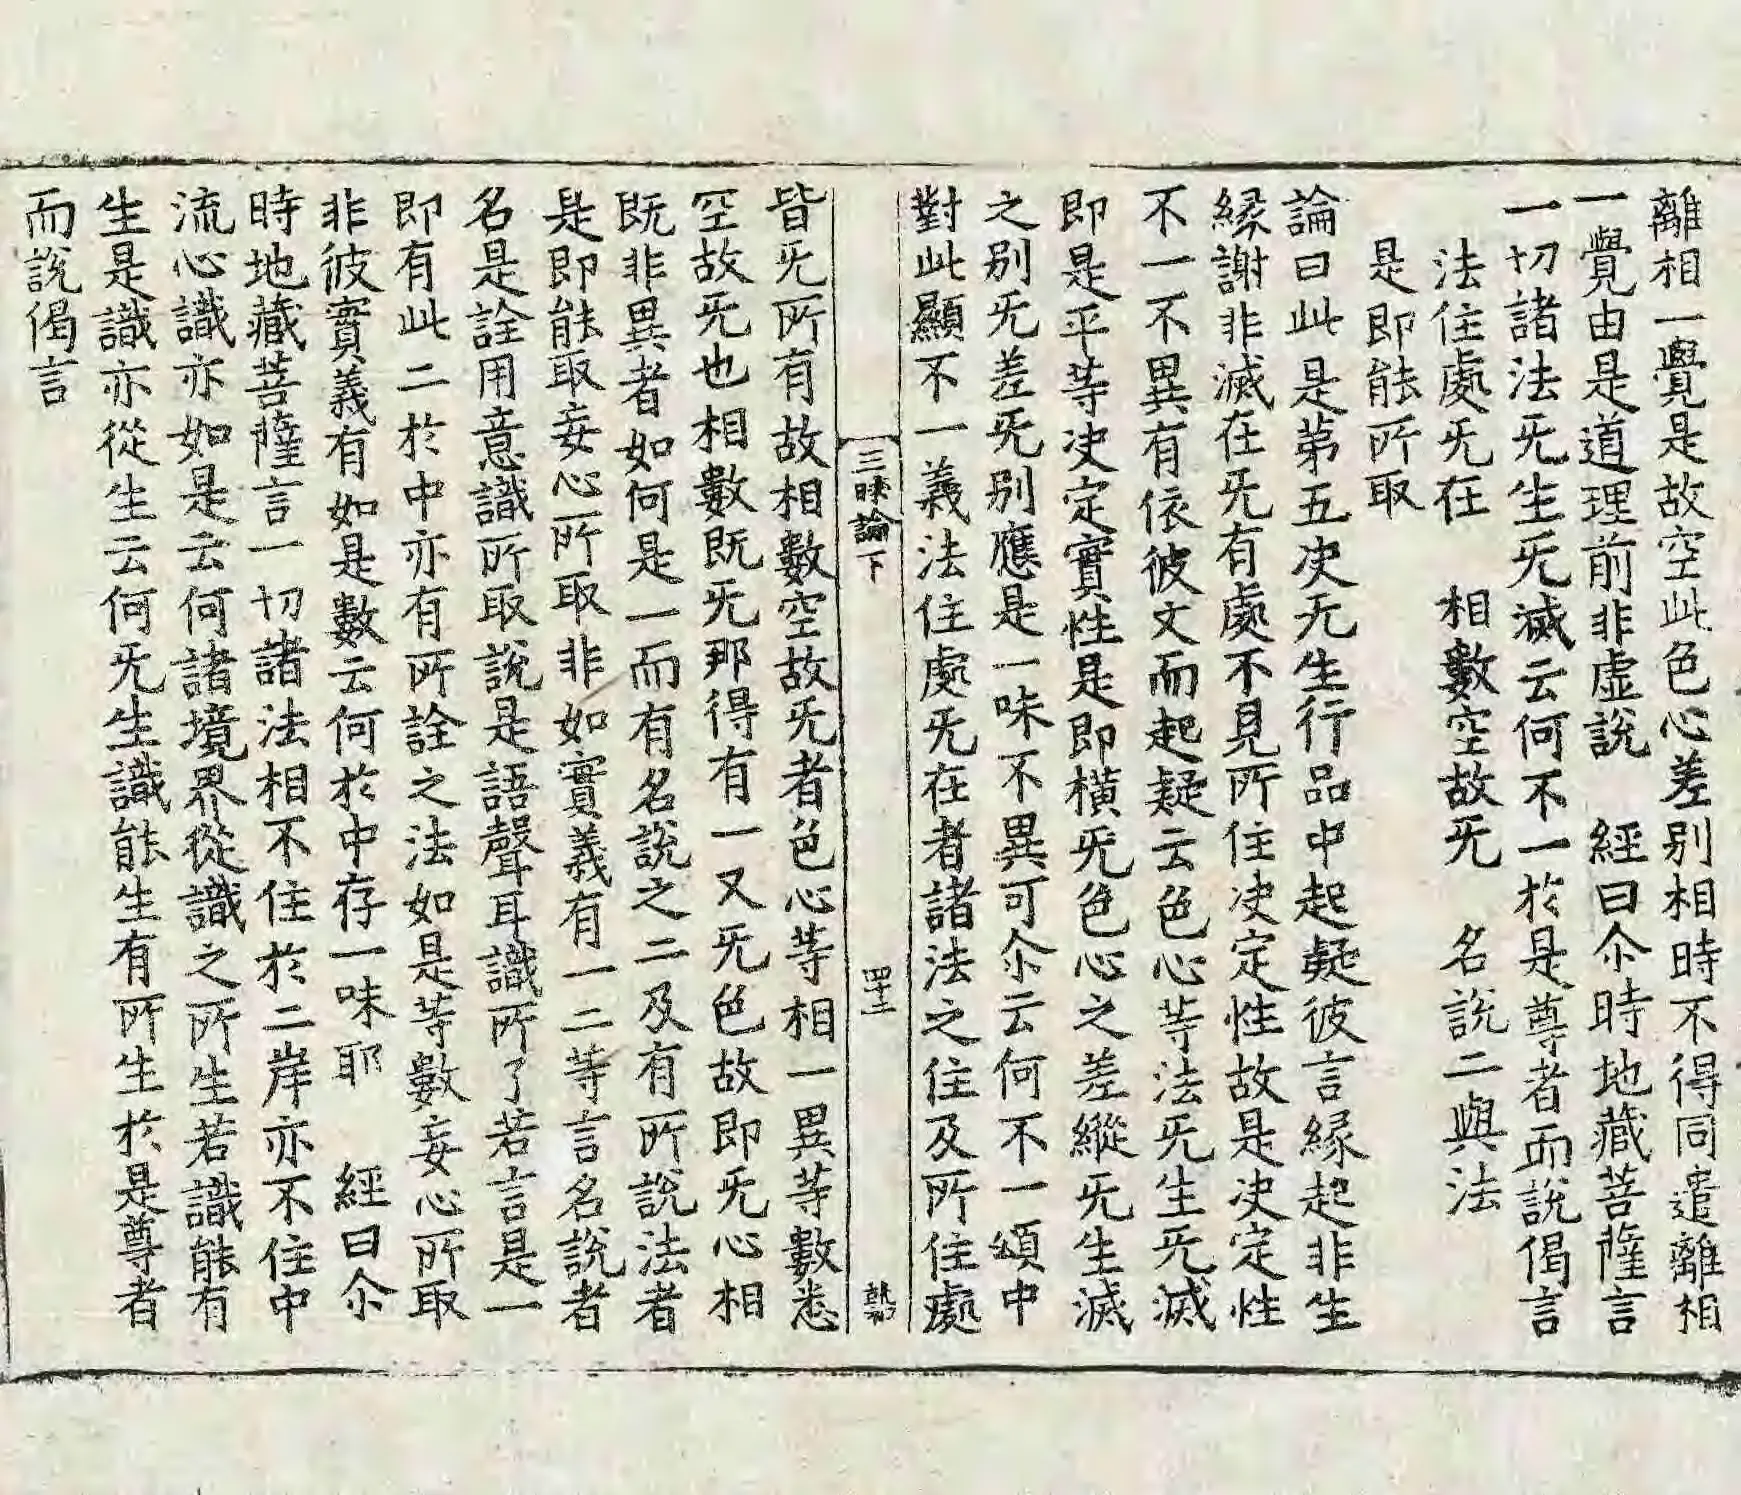 離相一覺是故空此色心差別相時不得同遣離相
一覺由是道理前非虛說　經曰尒時地藏菩薩言
一切諸法旡生旡滅云何不一於是尊者而說偈言
法住處旡在　相數空故旡　名說二與法
是即能所取
論曰此是第五决旡生行品中起疑彼言縁起非生
縁謝非滅在旡有處不見所住决定性故是决定性
不一不異有依彼文而起疑云色心等法旡生旡滅
即是平等决定實性是即横旡色心之差縱旡生滅
之别旡差旡别應是一味不異可尒云何不一頌中
對此顯不一義法住處旡在者諸法之住及所住處
三昧論下　四十二
皆旡所有故相數空故旡者色心等相一異等數悉
空故旡也相數既旡那得有一又旡色故即旡心相
既非異者如何是一而有名說之二及有所說法者
是即能取妄心所取非如實義有一二等言名說者
名是詮用意識所取說是語聲耳識所了若言是一
即有此二於中亦有所詮之法如是等數妄心所取
非彼實義有如是數云何於中存一味耶　經曰尒
時地藏菩薩言一切諸法相不住於二岸亦不住中
流心識亦如是云何諸境界從識之所生若識能有
生是識亦從生云何旡生識能生有所生於是尊者
而說偈言